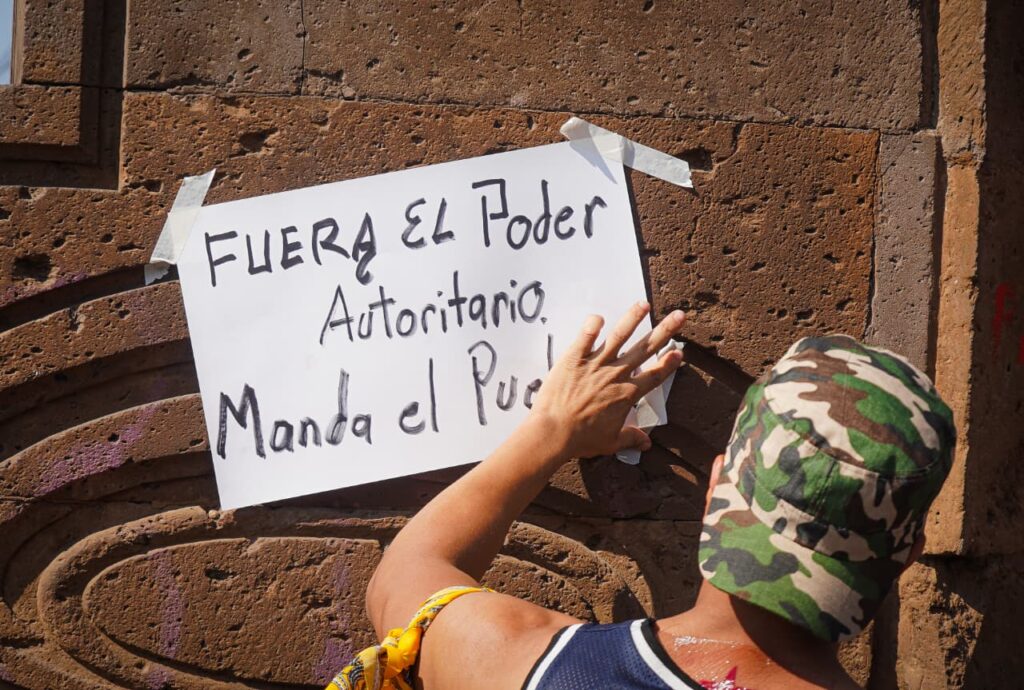 FUERA EL Poder
Autoritario.
Manda el Pue